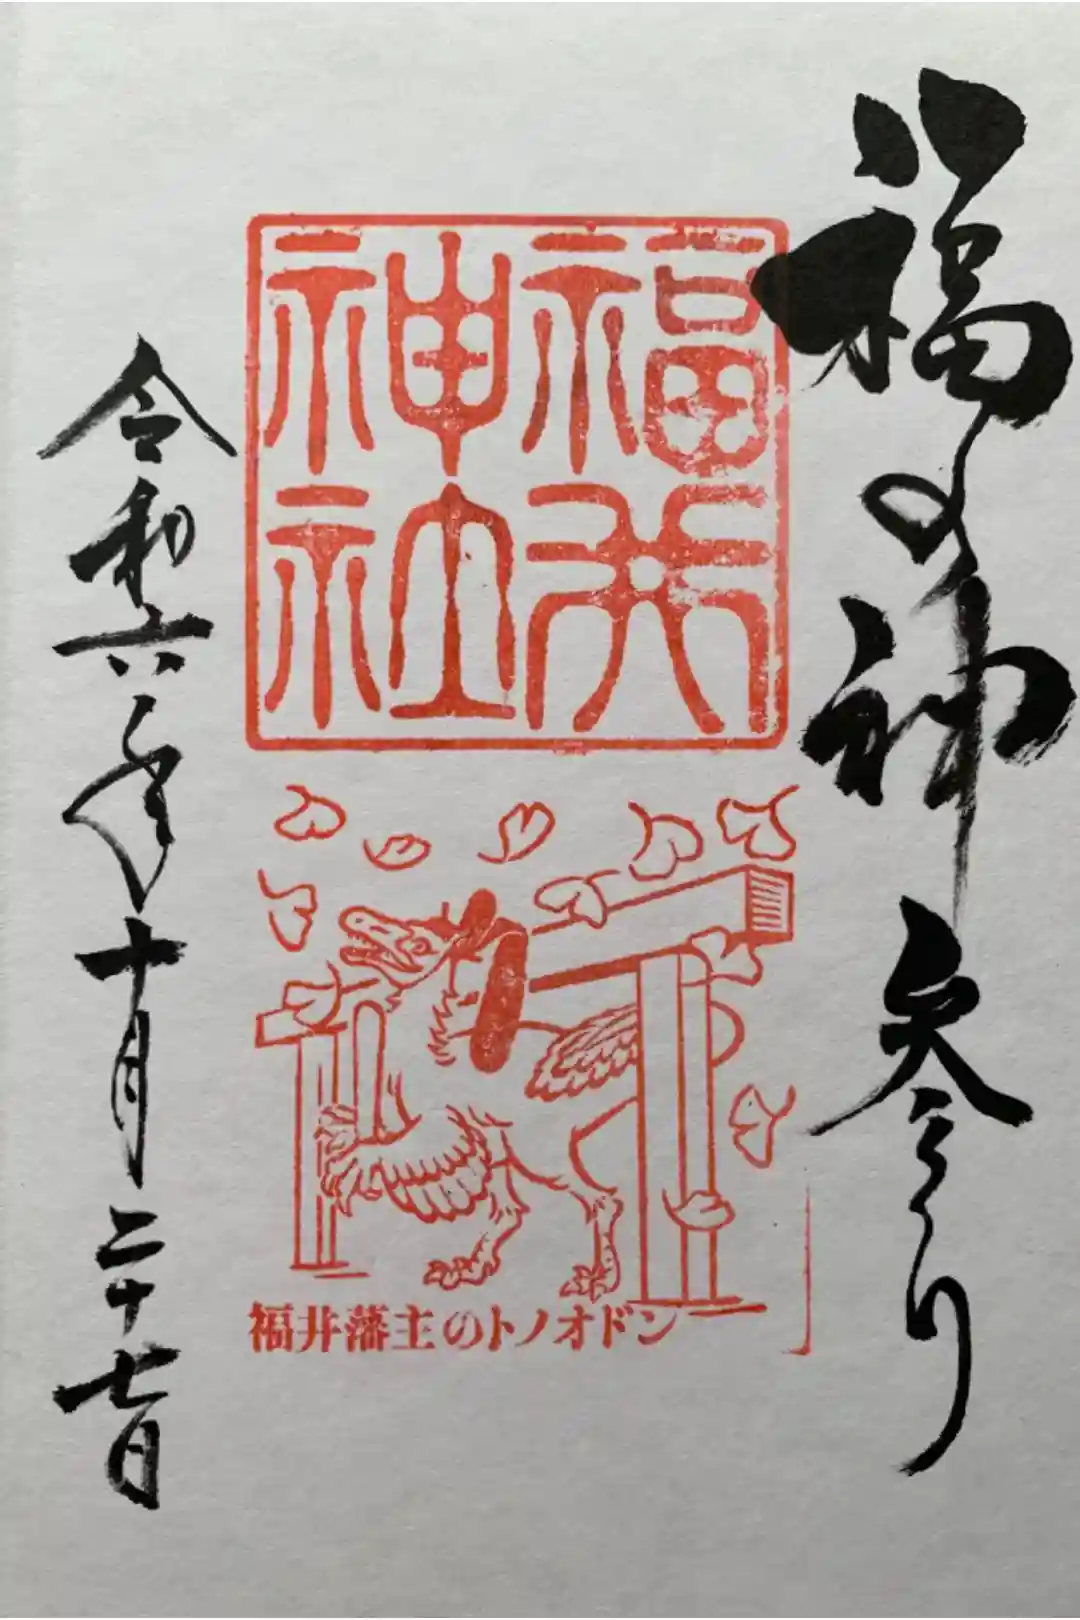 福の神参り
福井
神社
福井藩主のトノオドン
令和六年十月二十七日